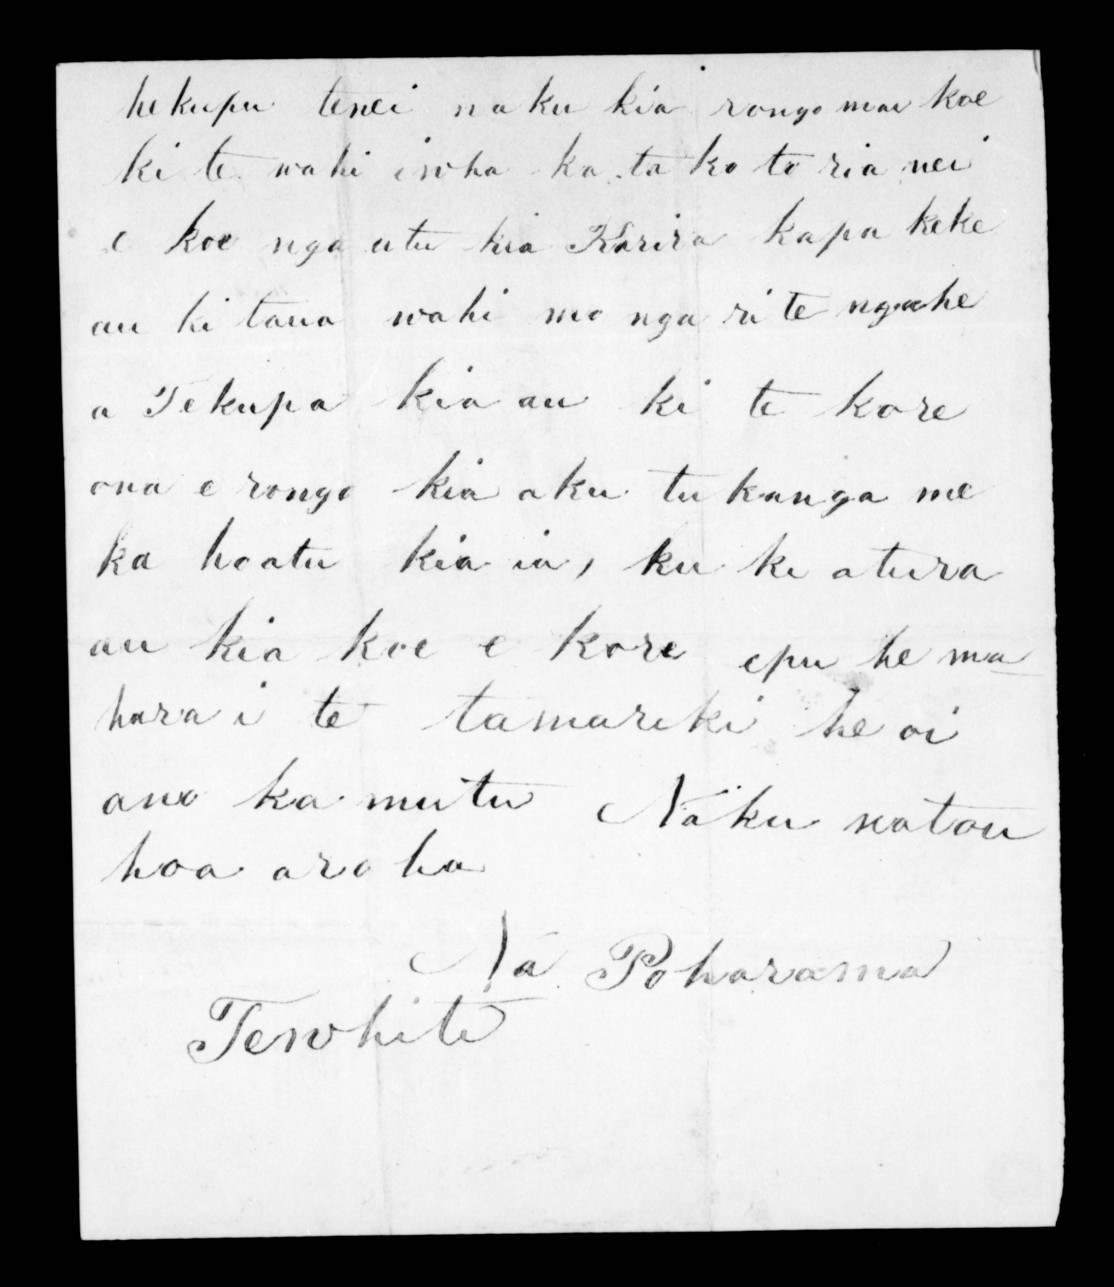 hekupu tenei naku kia rongo mai koe
ki te wahi iwha ka ta ko to ria nei
e koe nga utu kia Karira kapa keke
au ki taua wahi mo nga ri te ngahe
a Te kupa kia au ki te kore
ona e rongo kia aku tukanga me
ka hoatu kia ia, ku ki atura
au kia koe e kore epu he ma
hara i te tamariki he oi
ano ka mutu Naku na tou
hoa aroha
Na Poharama
Tewhiti